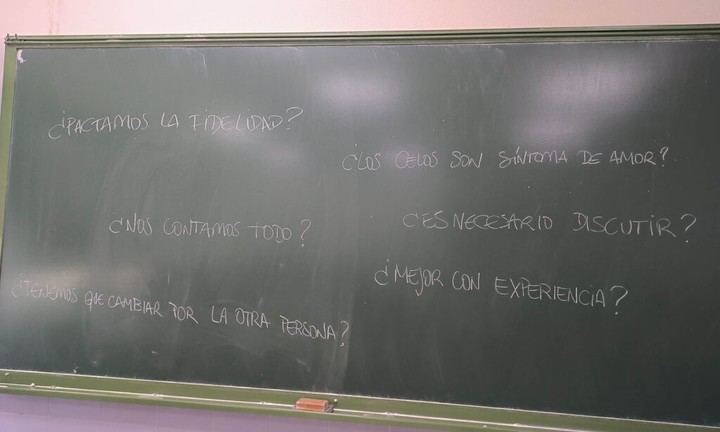 ¿PACTAMOS LA FIDELIDAD?
¿LOS CELOS SON SÍNTOMA DE AMOR?
¿NOS CONTAMOS TODO?
¿ES NECESARIO DISCUTIR?
¿MEJOR CON EXPERIENCIA?
¿TENEMOS QUE CAMBIAR POR LA OTRA PERSONA?